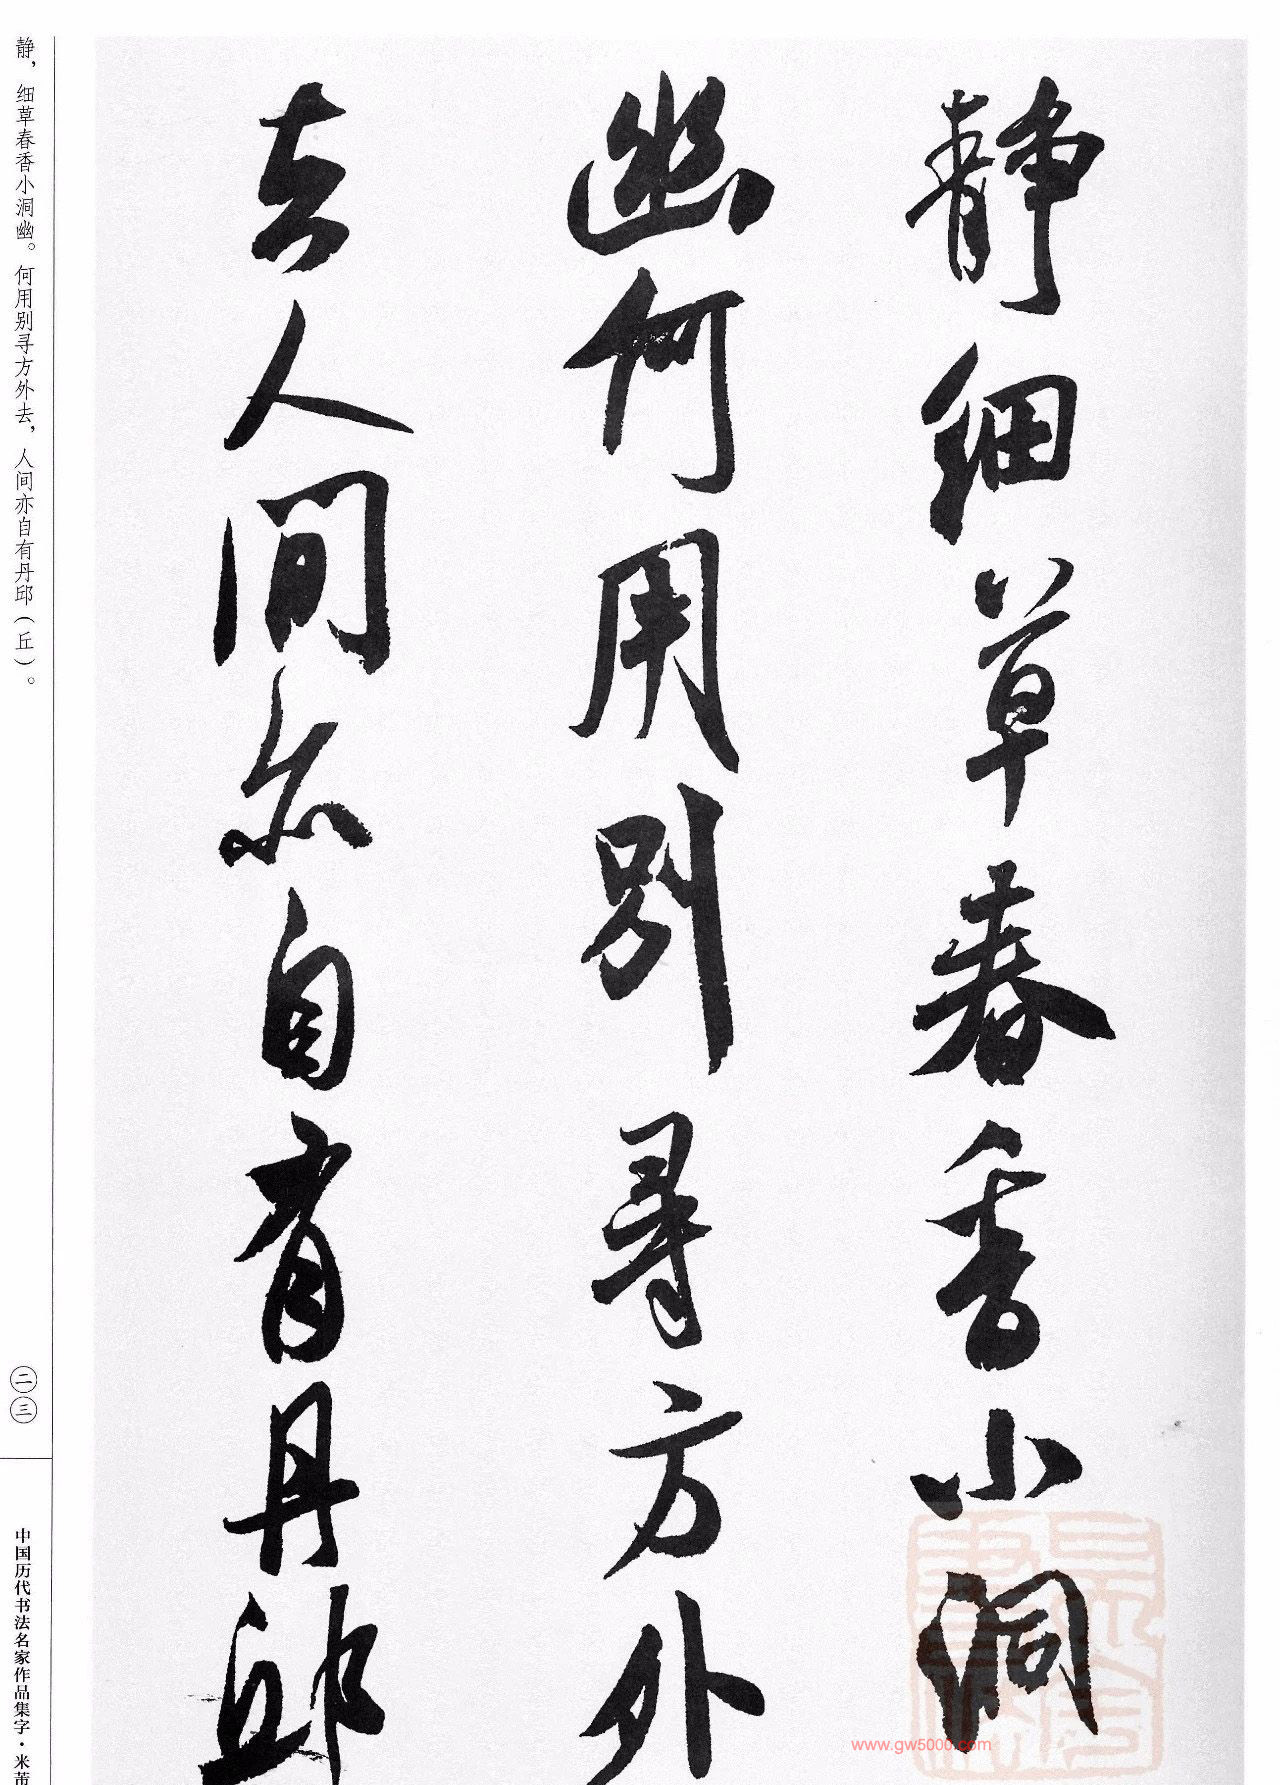 静细草春香小洞
幽何用别寻方外
去人间亦自有丹邱
静，细草春香小洞幽。何用别寻方外去，人间亦自有丹邱（丘）。
二三
中国历代书法名家作品集字·米芾
www.gw5000.com